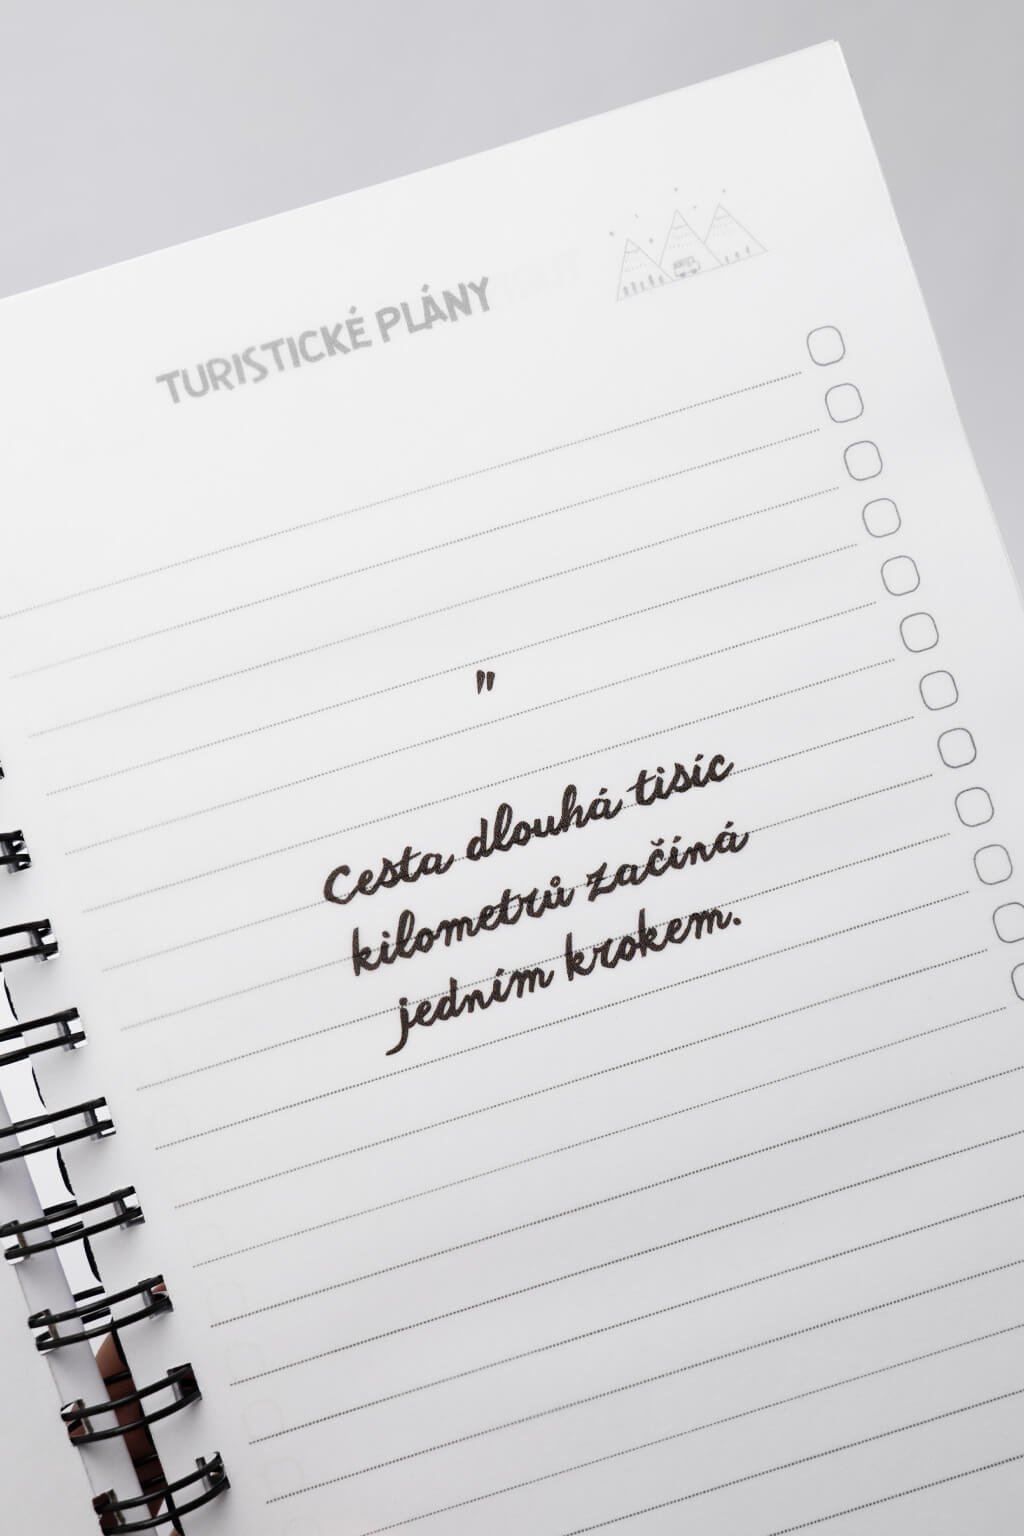 TURISTICKÉ PLÁNY
"
Cesta dlouhá tisíc
kilometrů začíná
jedním krokem.